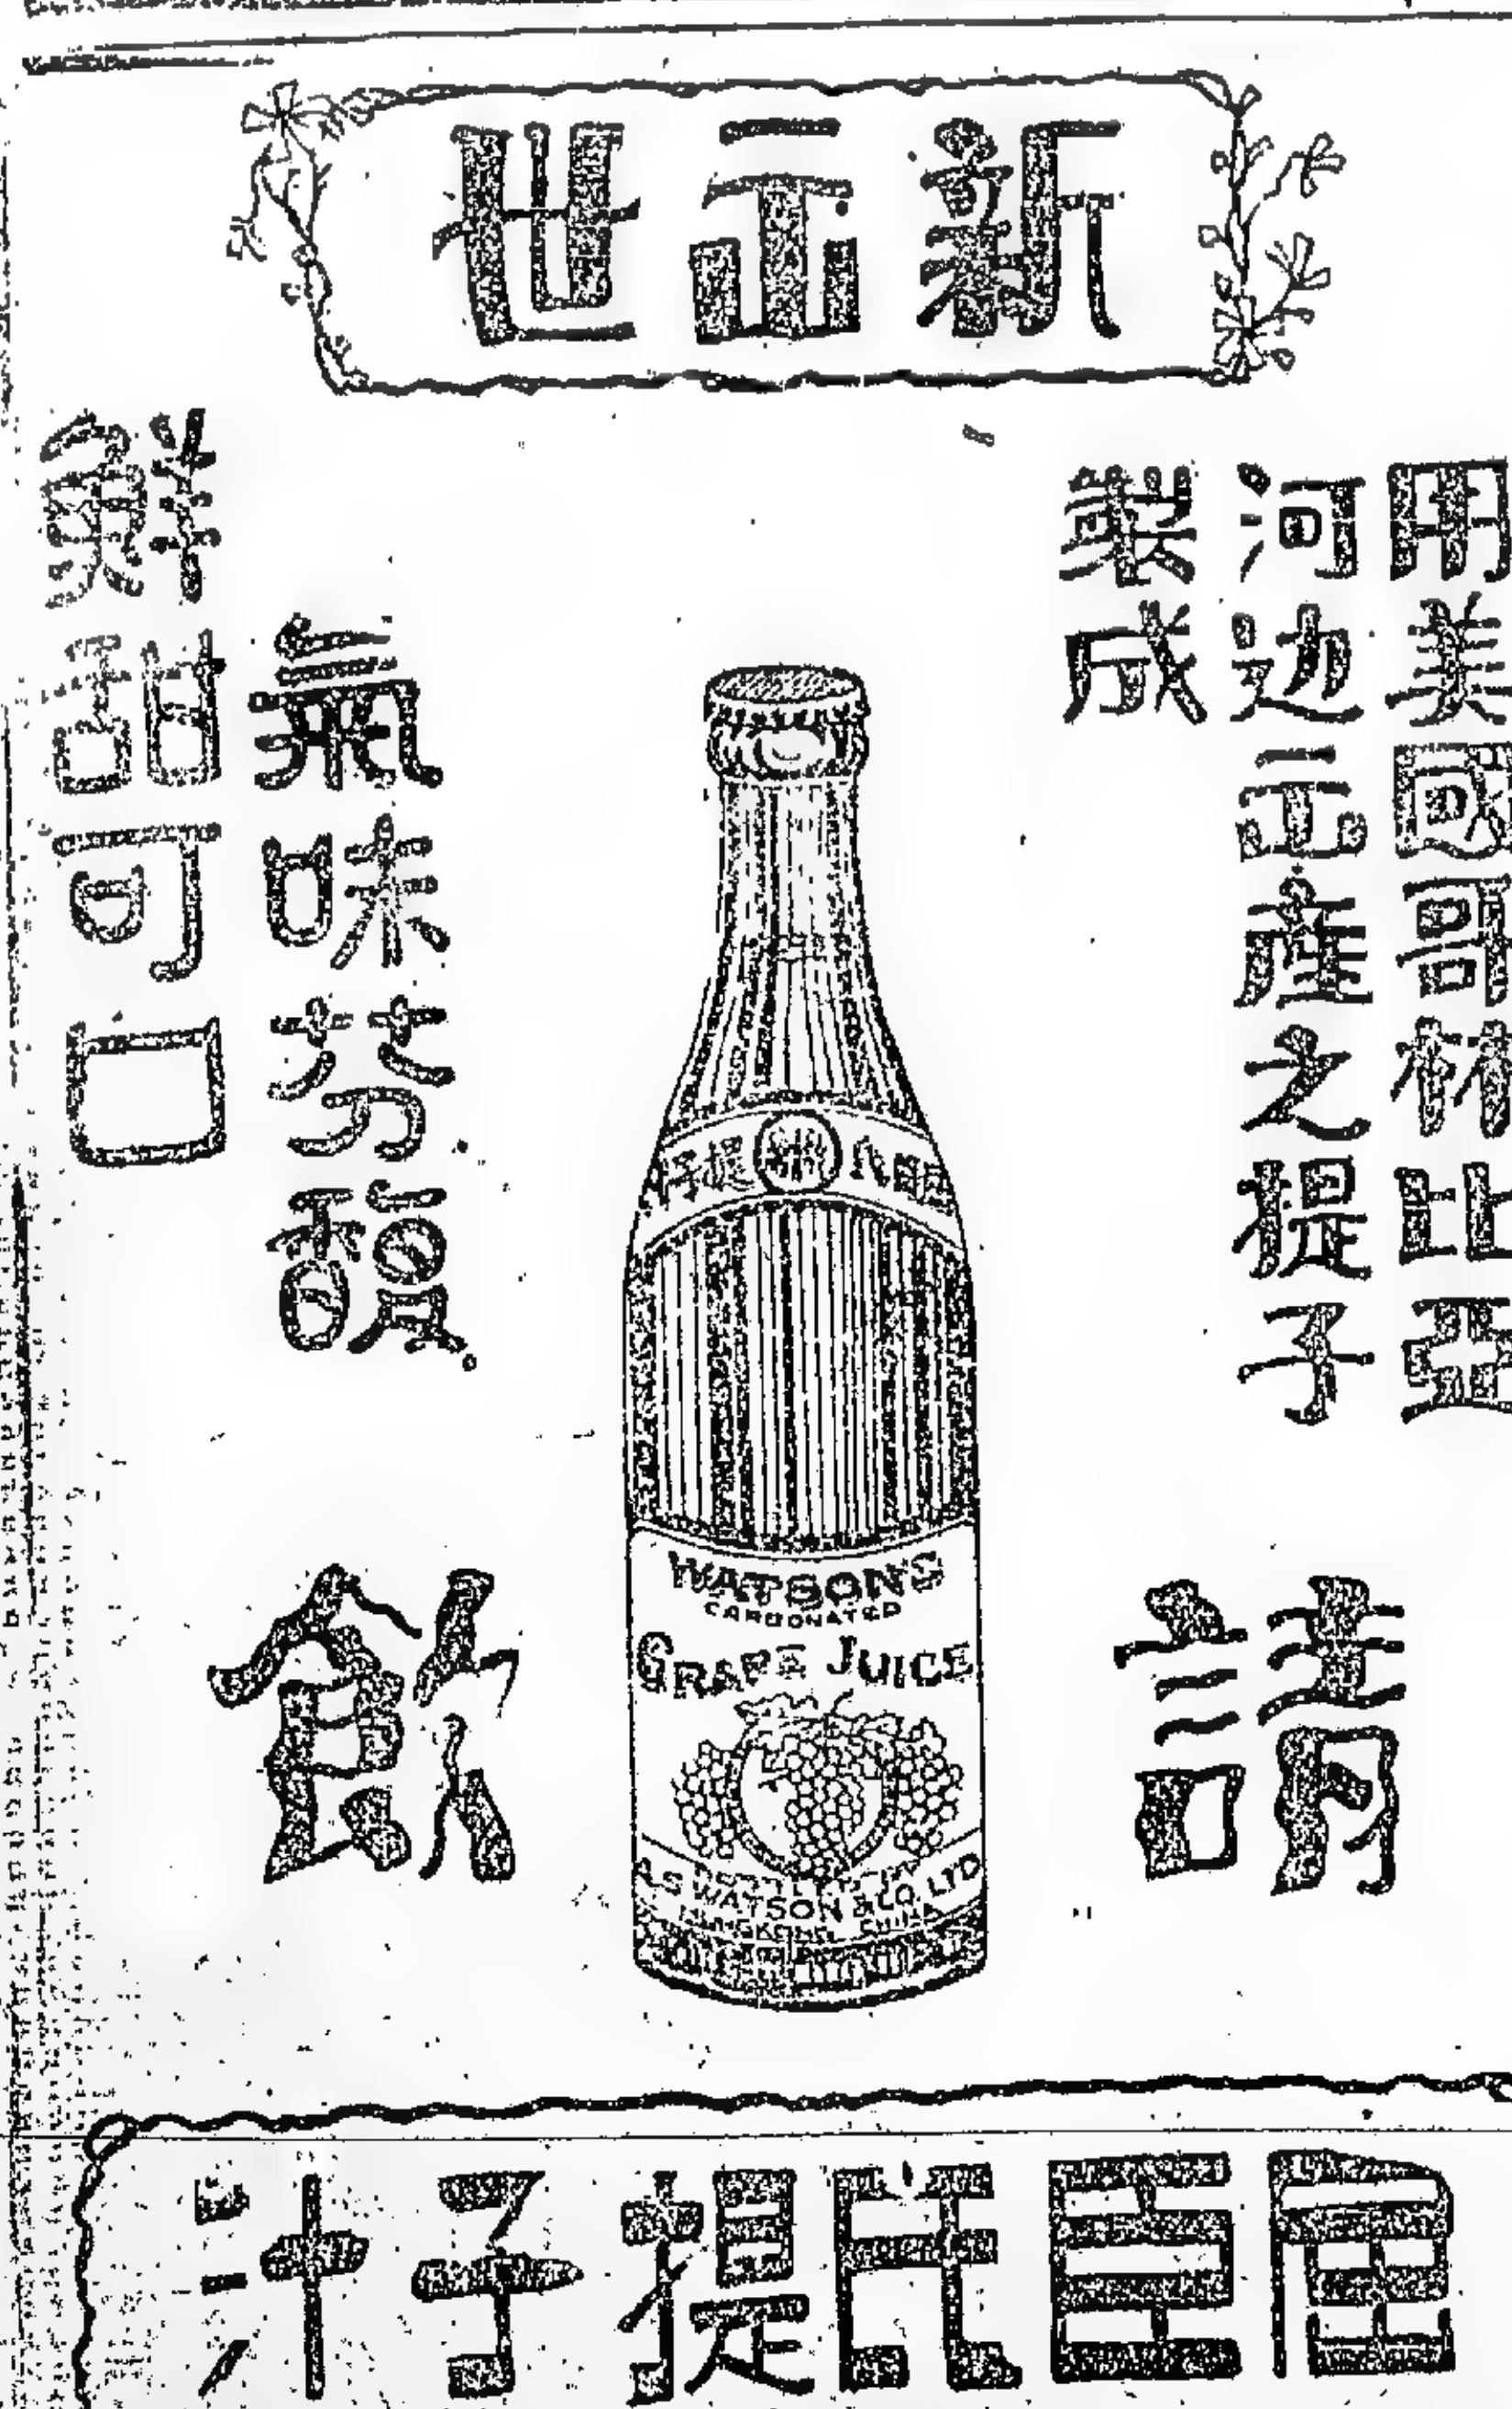 新出世
用美國哥林比亞
河边出產之提子
製成
氣味芬馥
鮮甜可口
請飲
WATSON'S
CARBONATED
GRAPE JUICE
A.S. WATSON & CO. LTD
HONGKONG, CHINA
屈臣氏提子汁